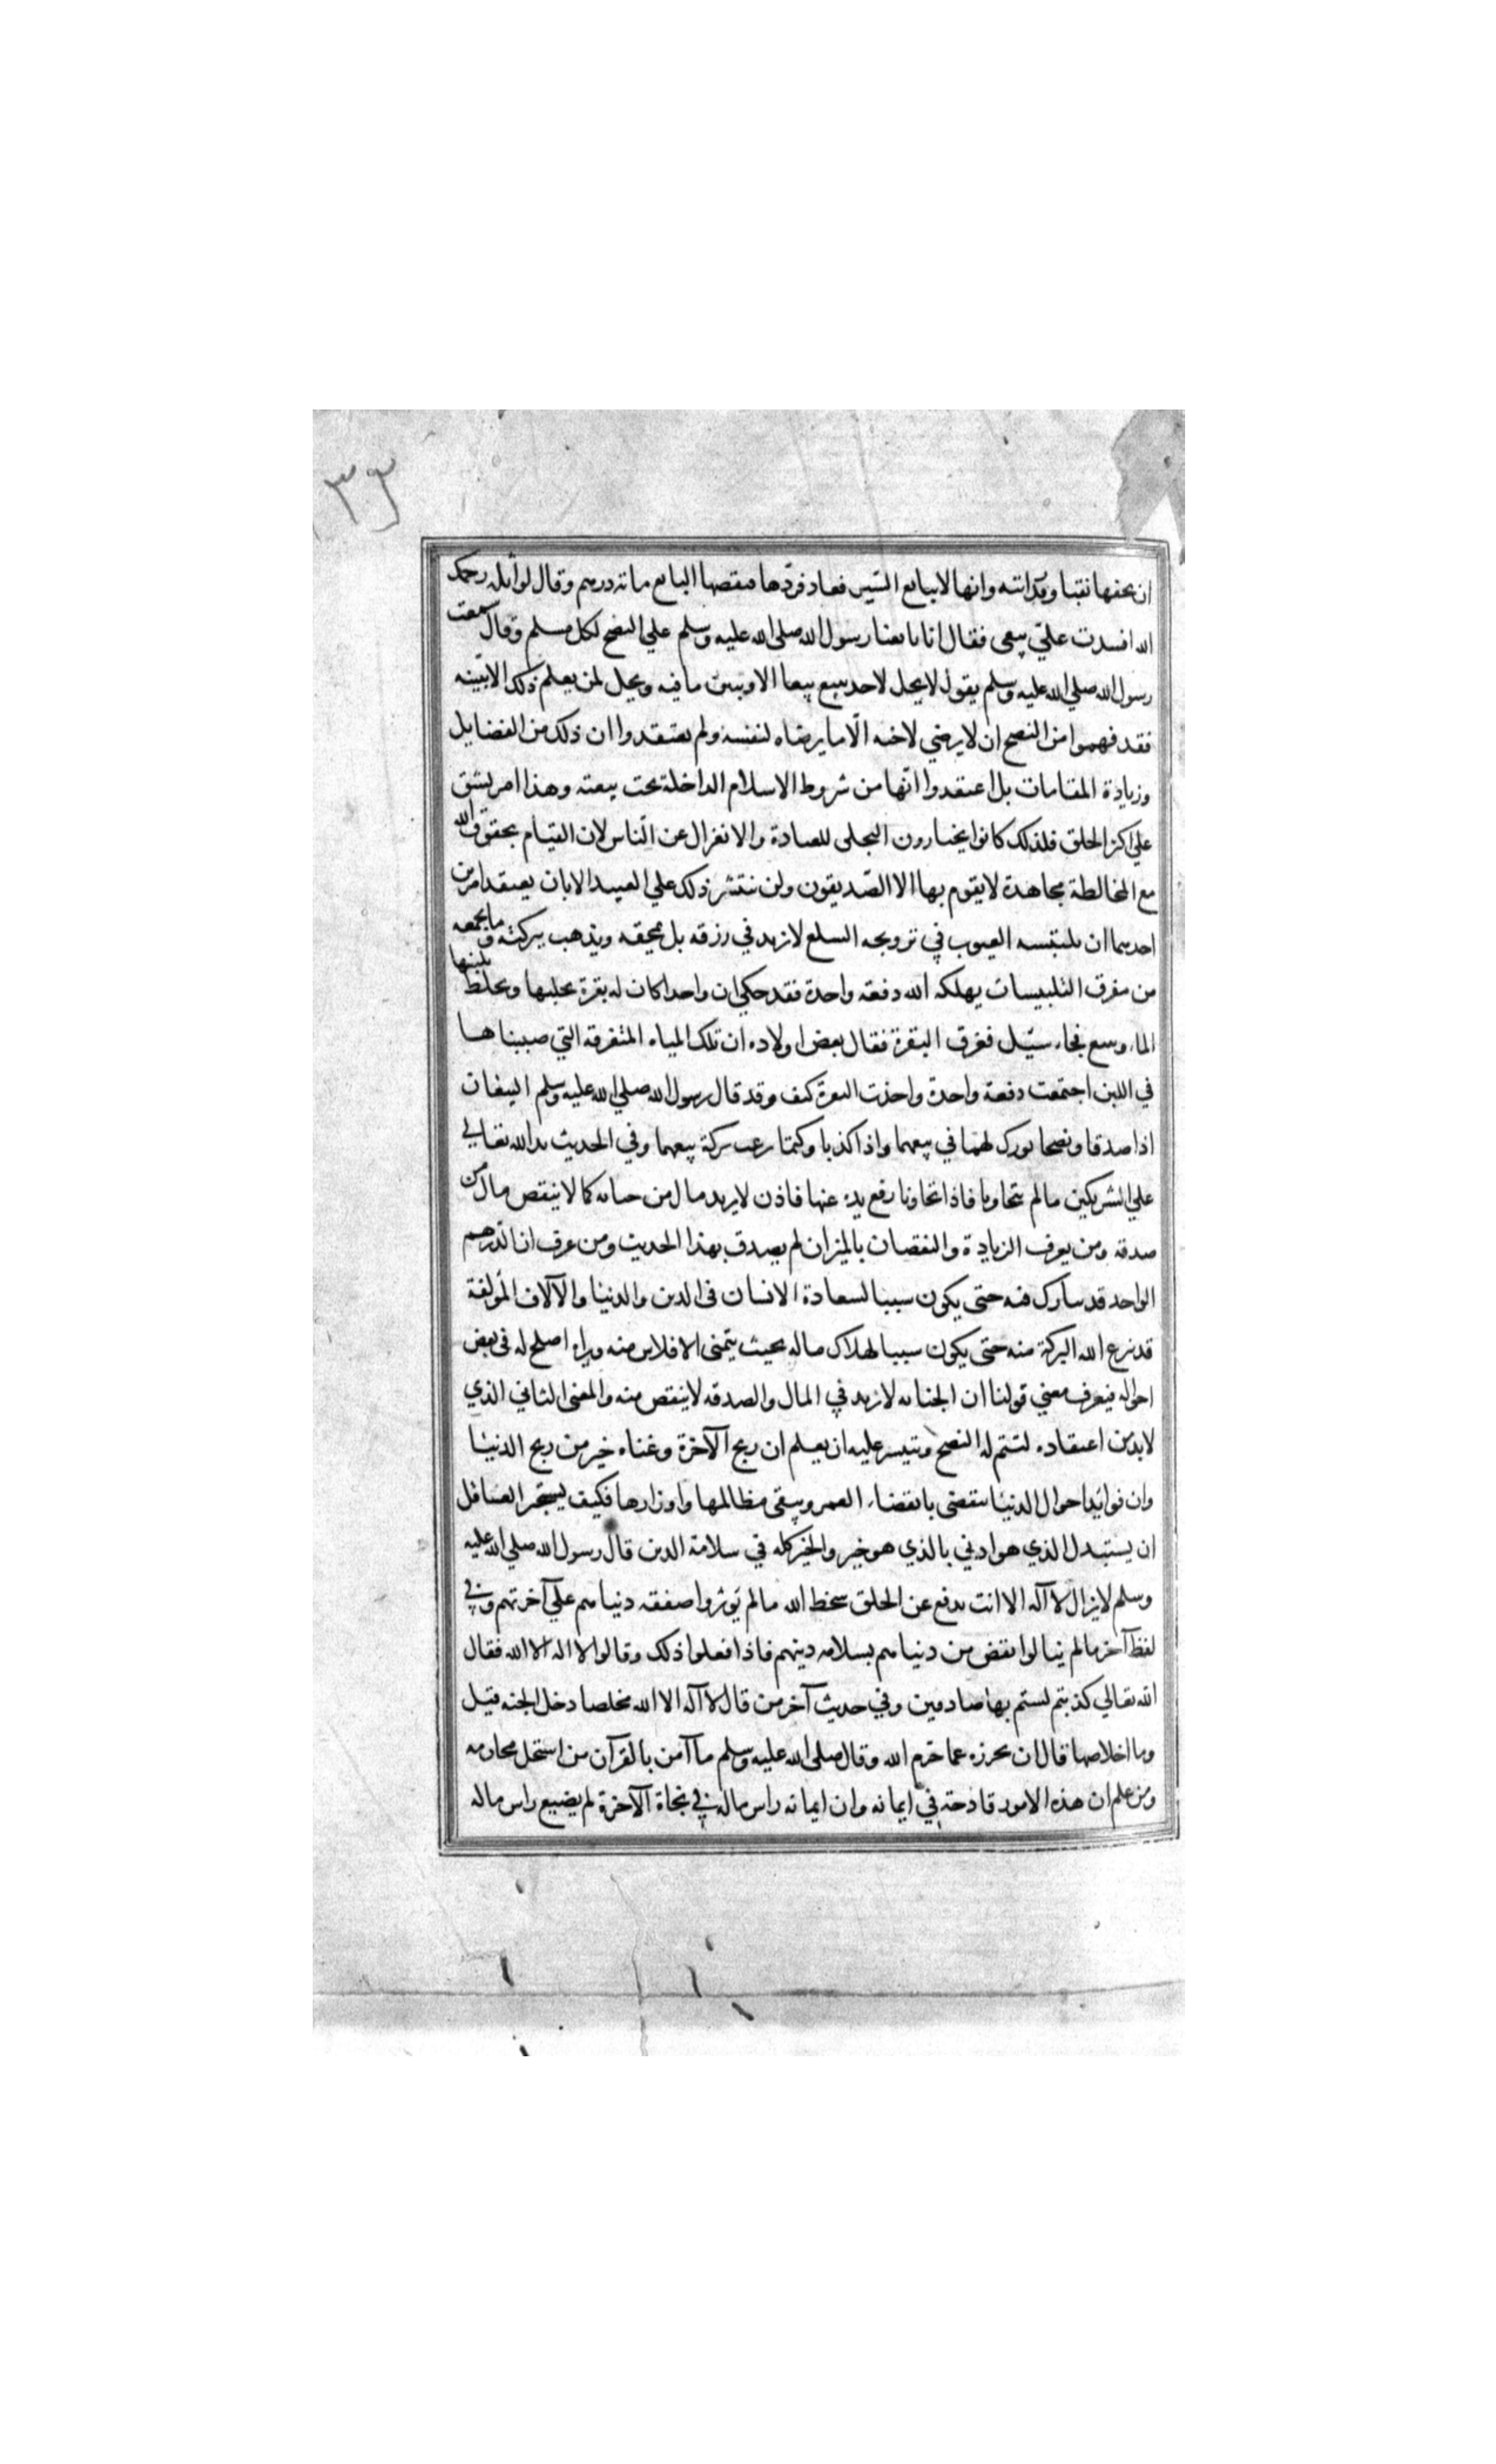 ٣٣
ان بخفها نقبا وقد راتته وانها لا يبايع السير فعاد فردها فنقصها البايع ماته درهم وقال لواثله رحمك
الله افسدت علي بيعى فقال انا بايعنا رسول الله صلى الله عليه وسلم علي النصح لكل مسلم وقال سمعت
رسول الله صلي الله عليه وسلم يقول لا يحل لاحد يبيع بيعا الا وبين ما فيه ويحل لمن يعلم ذلك الا بينه
فقد فهموا من النصح ان لا يرضي لاخيه الا ما يرضاه لنفسه ولم يعتقدوا ان ذلك من الفضايل
وزيادة المقامات بل اعتقدوا انها من شروط الاسلام الداخلة تحت بيعته وهذا امر يشق
علي اكثر الخلق فلذلك كانوا يختارون التخلى للعبادة والانعزال عن الناس لان القيام بحقوق الله
مع المخالطة مجاهدة لا يقوم بها الا الصديقون ولن تتشر ذلك علي العبد الا بان يعتقد امرين
احدهما ان تلبيسه العيوب في ترويجه السلع لا يزيد في رزقه بل يمحقه ويذهب ببركته وما يجمعه
من مفرق التلبيسات يهلكه الله دفعة واحدة فقد حكي ان واحدا كان له بقرة يحلبها ويخلط بلبنها
الماء ويبيع فجاء سيل فغرق البقرة فقال بعض اولاده ان تلك المياه المتفرقة التي صببناها
في اللبن اجتمعت دفعة واحدة واخذت البقرة كيف وقد قال رسول الله صلي الله عليه وسلم البيعان
اذا صدقا ونصحا بورك لهما في بيعهما واذا كذبا وكتما نزعت بركة بيعهما وفي الحديث يد الله تعالي
علي الشريكين ما لم يتخاونا فاذا تخاونا رفع يده عنها فاذن لا يزيد مال من خيانه كما لا ينقص مال من
صدقه ومن يعرف الزيادة والنقصان بالميزان لم يصدق بهذا الحديث ومن عرف ان الدرهم
الواحد قد يبارك فيه حتى يكون سببا لسعادة الانسان فى الدين والدنيا والآلاف المولفة
قد نزع الله البركة منه حتى يكون سببا لهلاك ماله بحيث يتمنى الافلاس منه ويراه اصلح له فى بعض
احواله فيعرف معني قولنا ان الخيانه لا تزيد في المال والصدقه لا ينقص منه والمعنى الثاني الذي
لا بد من اعتقاده لتتم له النصح وتيسر عليه ان يعلم ان ربح الآخرة وغناه خير من ربح الدنيا
وان فوايد احوال الدنيا تنقضى بانقضاء العمر ويبقى مظالمها واوزارها فكيف يستجر العاقل
ان يستبدل الذي هو ادني بالذي هو خير والخير كله في سلامة الدين قال رسول الله صلي الله عليه
وسلم لا يزال لا اله الا انت يدفع عن الخلق سخط الله ما لم يوثروا صفقه دنياهم علي آخرتهم وفي
لفظ آخر ما لم ينالوا نقص من دنياهم بسلامه دينهم فاذا فعلوا ذلك وقالوا لا اله الا الله فقال
الله تعالي كذبتم لستم بها صادقين وفي حديث آخر من قال لا اله الا الله مخلصا دخل الجنه قيل
وما اخلاصها قال ان يحرزه عما حرم الله وقال صلى الله عليه وسلم ما آمن بالقرآن من استحل محارمه
ومن علم ان هذه الامور قادحة في ايمانه وان ايمانه راس ماله في نجاة الآخرة لم يضيع راس ماله